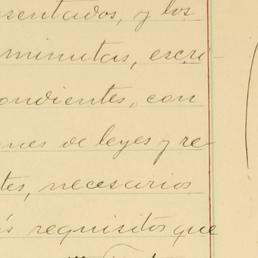 sentados, y los
minutas, escri-
ondientes, con
nes de leyes y re
tes, necesarios
s requisitos que